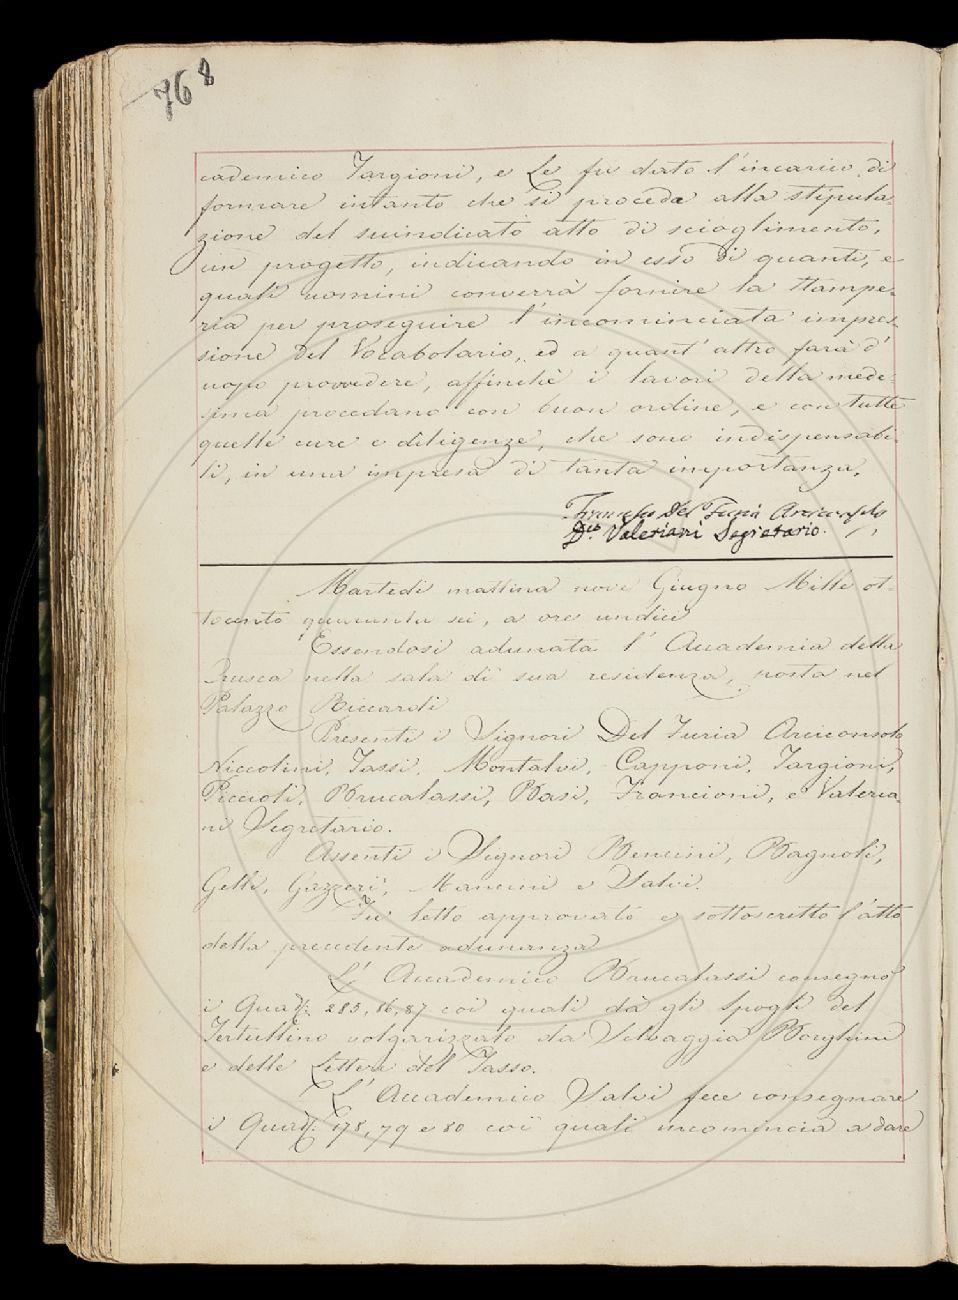 768
cademico Targioni, e Le fu dato l'incarico di
formare intanto che si proceda alla stipula-
zione del suindicato atto di scioglimento,
un progetto, indicando in esso di quanti, e
quali uomini converrà fornire la Stampe-
ria per proseguire l'incominciata impres-
sione del Vocabolario, ed a quant'altro farà d'
uopo provvedere, affinchè i lavori della mede-
sima procedano con buon ordine, e con tutte
quelle cure e diligenze, che sono indispensabi-
li, in una impresa di tanta importanza.
Francesco Del Furia Arciconsolo
Valeriani Segretario.
Martedi mattina nove Giugno Mille ot-
tocento quaranta sei, a ore undici
Essendosi adunata l'Accademia della
Crusca nella sala di sua residenza, posta nel
Palazzo Riccardi
Presenti i Signori Del Furia Arciconsolo
Niccolini, Tassi, Montalvi, Capponi, Targioni,
Piccioli, Brucalassi, Basi, Francioni, e Valeria-
ni Segretario.
Assenti i Signori Bencini, Bagnoli,
Gelli, Gazzeri, Mancini e Salvi.
Fu letto approvato e sottoscritto l'atto
della precedente adunanza
L'Accademico Brucalassi consegnò
i Quad: 285, 86, 87 coi quali dà gli Spogli del
Tertullino volgarizzato da Selvaggia Borghini
e delle Lettere del Tasso.
L'Accademico Salvi fece consegnare
i Quad: 178, 79 e 80 coi quali incomincia a dare